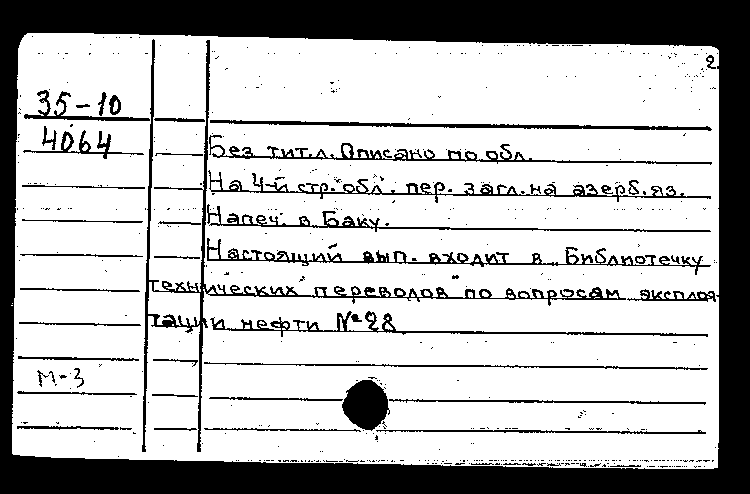 2.
35-10
4064
Без тит.л. Описано по обл.
На 4-й стр. обл. пер. загл. на азерб. яз.
Напеч. в Баку.
Настоящий вып. входит в „Библиотечку
технических переводов" по вопросам эксплоа-
тации нефти № 28
М-3